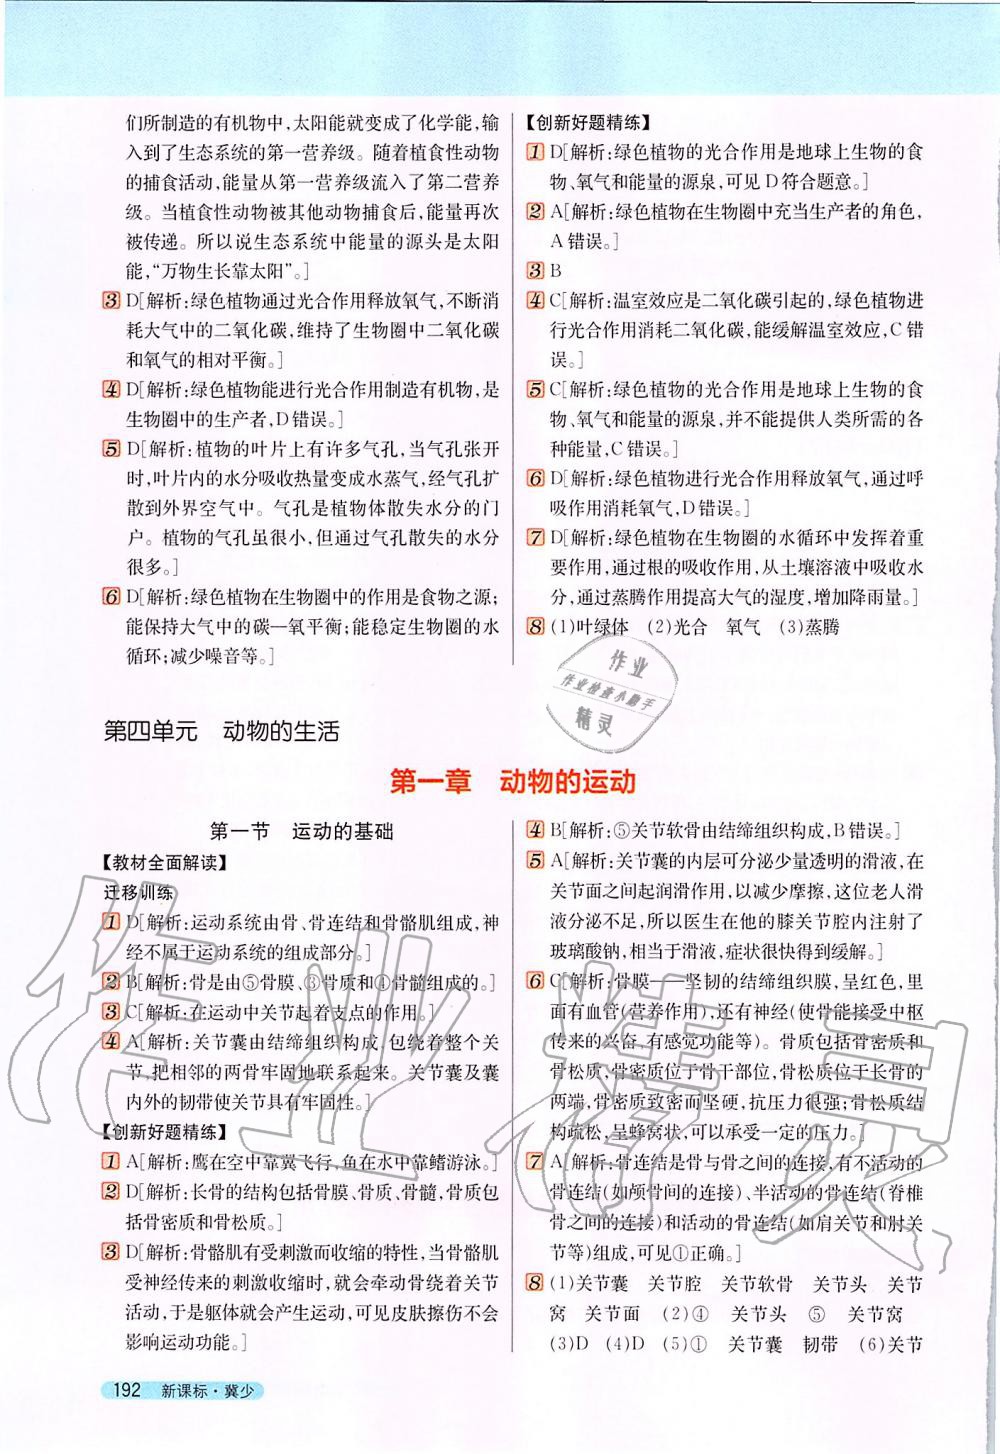 们所制造的有机物中,太阳能就变成了化学能,输
入到了生态系统的第一营养级。随着植食性动物
的捕食活动,能量从第一营养级流入了第二营养
级。当植食性动物被其他动物捕食后,能量再次
被传递。所以说生态系统中能量的源头是太阳
能,“万物生长靠太阳”。]
3 D[解析:绿色植物通过光合作用释放氧气,不断消
耗大气中的二氧化碳,维持了生物圈中二氧化碳
和氧气的相对平衡。]
4 D[解析:绿色植物能进行光合作用制造有机物,是
生物圈中的生产者,D错误。]
5 D[解析:植物的叶片上有许多气孔,当气孔张开
时,叶片内的水分吸收热量变成水蒸气,经气孔扩
散到外界空气中。气孔是植物体散失水分的门
户。植物的气孔虽很小,但通过气孔散失的水分
很多。]
6 D[解析:绿色植物在生物圈中的作用是食物之源;
能保持大气中的碳—氧平衡;能稳定生物圈的水
循环;减少噪音等。]
【创新好题精练】
1 D[解析:绿色植物的光合作用是地球上生物的食
物、氧气和能量的源泉,可见D符合题意。]
2 A[解析:绿色植物在生物圈中充当生产者的角色,
A错误。]
3 B
4 C[解析:温室效应是二氧化碳引起的,绿色植物进
行光合作用消耗二氧化碳,能缓解温室效应,C错
误。]
5 C[解析:绿色植物的光合作用是地球上生物的食
物、氧气和能量的源泉,并不能提供人类所需的各
种能量,C错误。]
6 D[解析:绿色植物进行光合作用释放氧气,通过呼
吸作用消耗氧气,D错误。]
7 D[解析:绿色植物在生物圈的水循环中发挥着重
要作用,通过根的吸收作用,从土壤溶液中吸收水
分,通过蒸腾作用提高大气的湿度,增加降雨量。]
8 (1)叶绿体 (2)光合 氧气 (3)蒸腾
作业
作业检查小助手
精灵
第四单元 动物的生活
第一章 动物的运动
第一节 运动的基础
【教材全面解读】
迁移训练
1 D[解析:运动系统由骨、骨连结和骨骼肌组成,神
经不属于运动系统的组成部分。]
2 B[解析:骨是由⑤骨膜、③骨质和④骨髓组成的。]
3 C[解析:在运动中关节起着支点的作用。]
4 A[解析:关节囊由结缔组织构成,包绕着整个关
节,把相邻的两骨牢固地联系起来。关节囊及囊
内外的韧带使关节具有牢固性。]
【创新好题精练】
1 A[解析:鹰在空中靠翼飞行,鱼在水中靠鳍游泳。]
2 D[解析:长骨的结构包括骨膜、骨质、骨髓,骨质包
括骨密质和骨松质。]
3 D[解析:骨骼肌有受刺激而收缩的特性,当骨骼肌
受神经传来的刺激收缩时,就会牵动骨绕着关节
活动,于是躯体就会产生运动,可见皮肤擦伤不会
影响运动功能。]
4 B[解析:⑤关节软骨由结缔组织构成,B错误。]
5 A[解析:关节囊的内层可分泌少量透明的滑液,在
关节面之间起润滑作用,以减少摩擦,这位老人滑
液分泌不足,所以医生在他的膝关节腔内注射了
玻璃酸钠,相当于滑液,症状很快得到缓解。]
6 C[解析:骨膜——坚韧的结缔组织膜,呈红色,里
面有血管(营养作用),还有神经(使骨能接受中枢
传来的兴奋,有感觉功能等)。骨质分骨密质和
骨松质,骨密质位于骨干部位,骨松质位于长骨的
两端,骨密质致密而坚硬,抗压力很强;骨松质结
构疏松,呈蜂窝状,可以承受一定的压力。]
7 A[解析:骨连结是骨与骨之间的连接,有不活动的
骨连结(如颅骨间的连接)、半活动的骨连结(脊椎
骨之间的连接)和活动的骨连结(如肩关节和肘关
节等)组成,可见①正确。]
8 (1)关节囊 关节腔 关节软骨 关节头 关节
窝 关节面 (2)④ 关节头 ⑤ 关节窝
(3)D (4)D (5)① 关节囊 韧带 (6)关节
192 新课标·冀少
作业精灵